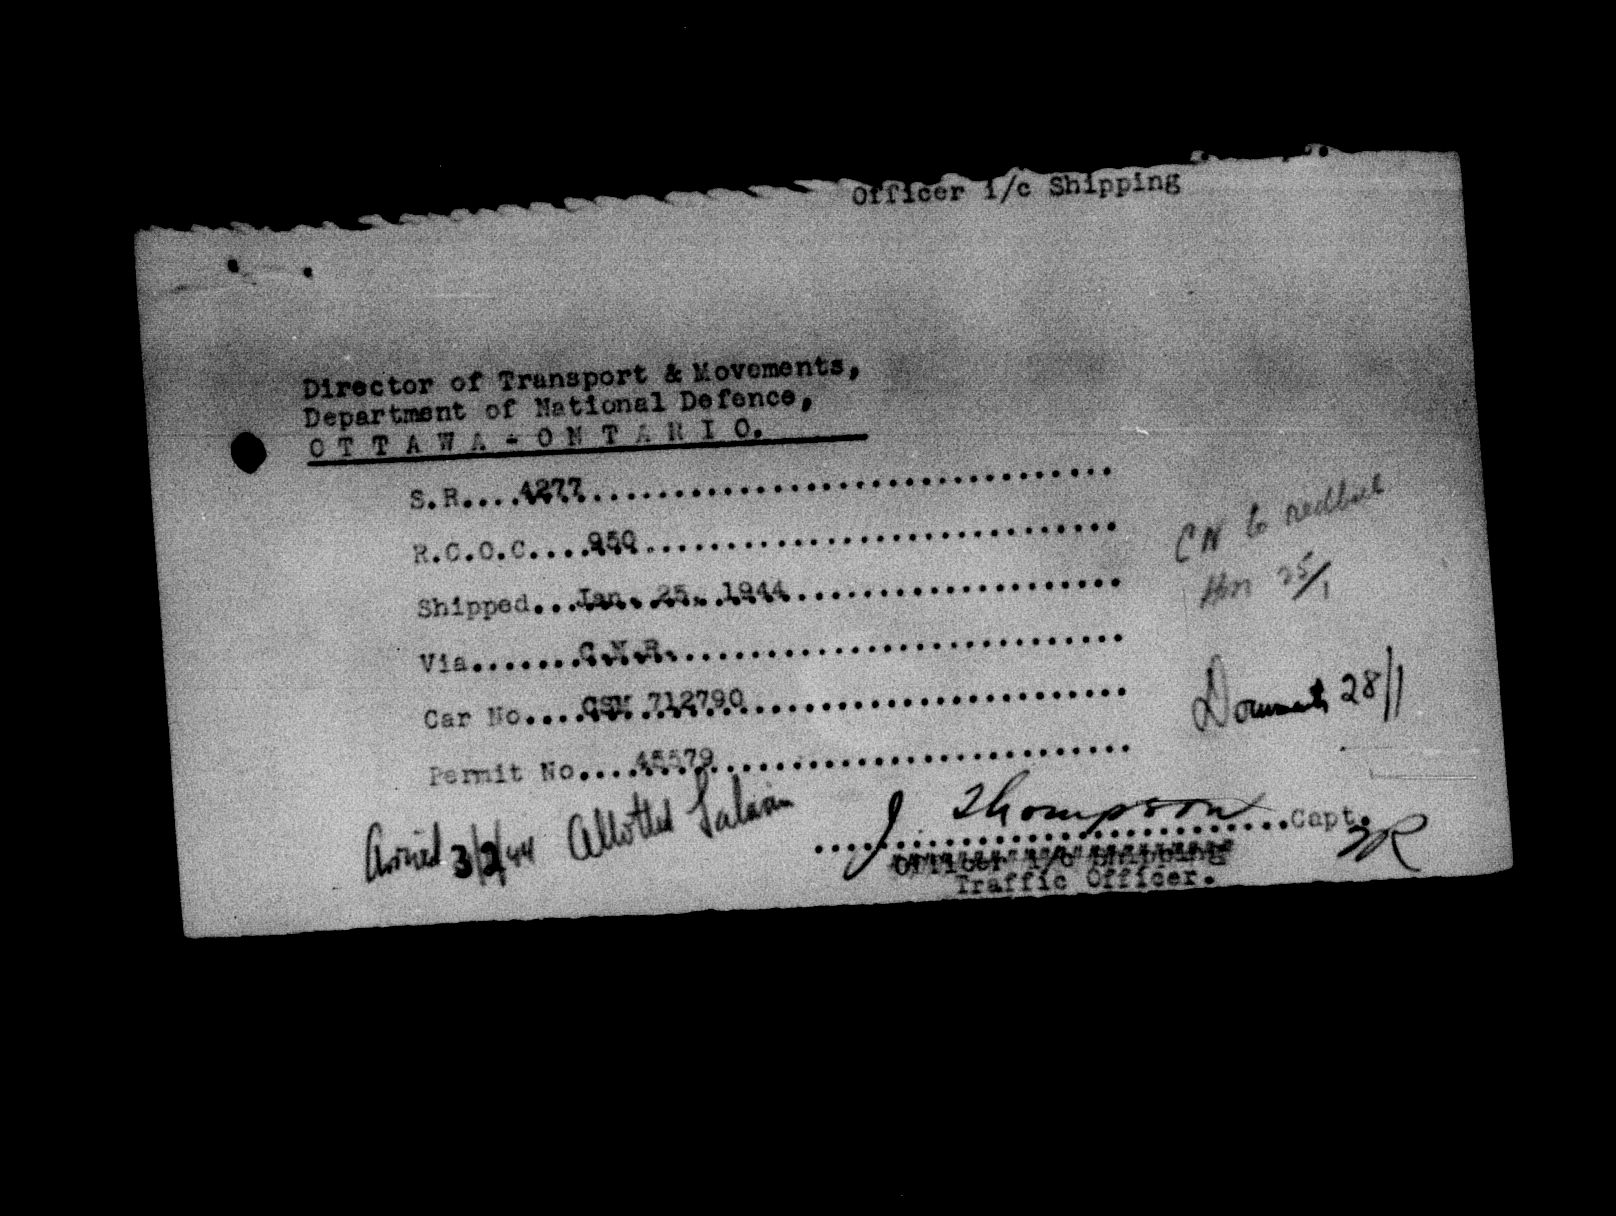 Officer i/c Shipping
Director of Transport & Movements,
Department of National Defence,
O T T A W A - O N T A R I O.
S.R....4277....................................
R.C.O.C....950....................................
Shipped...Jan. 25, 1944....................................
CN to
25/1
Via.......C.N.R.....................................
Car No....GSM 712790....................................
Documents 28/1
Permit No....45579....................................
Arrived 3/2/44 Allotted
J Thompson Capt.
Officer i/c Shipping
Traffic Officer.